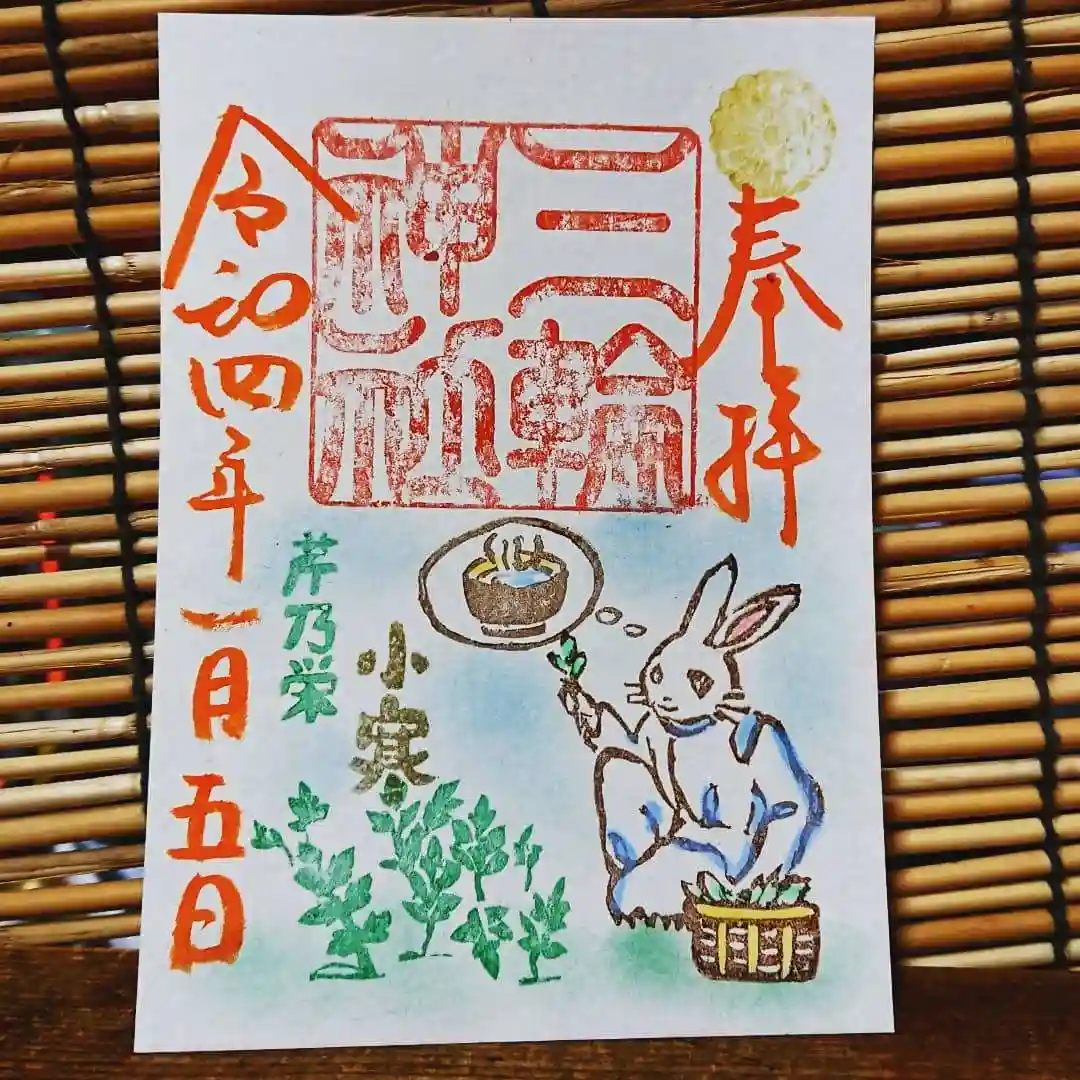 奉拝
三輪
神社
小寒
芹乃栄
令和四年一月五日